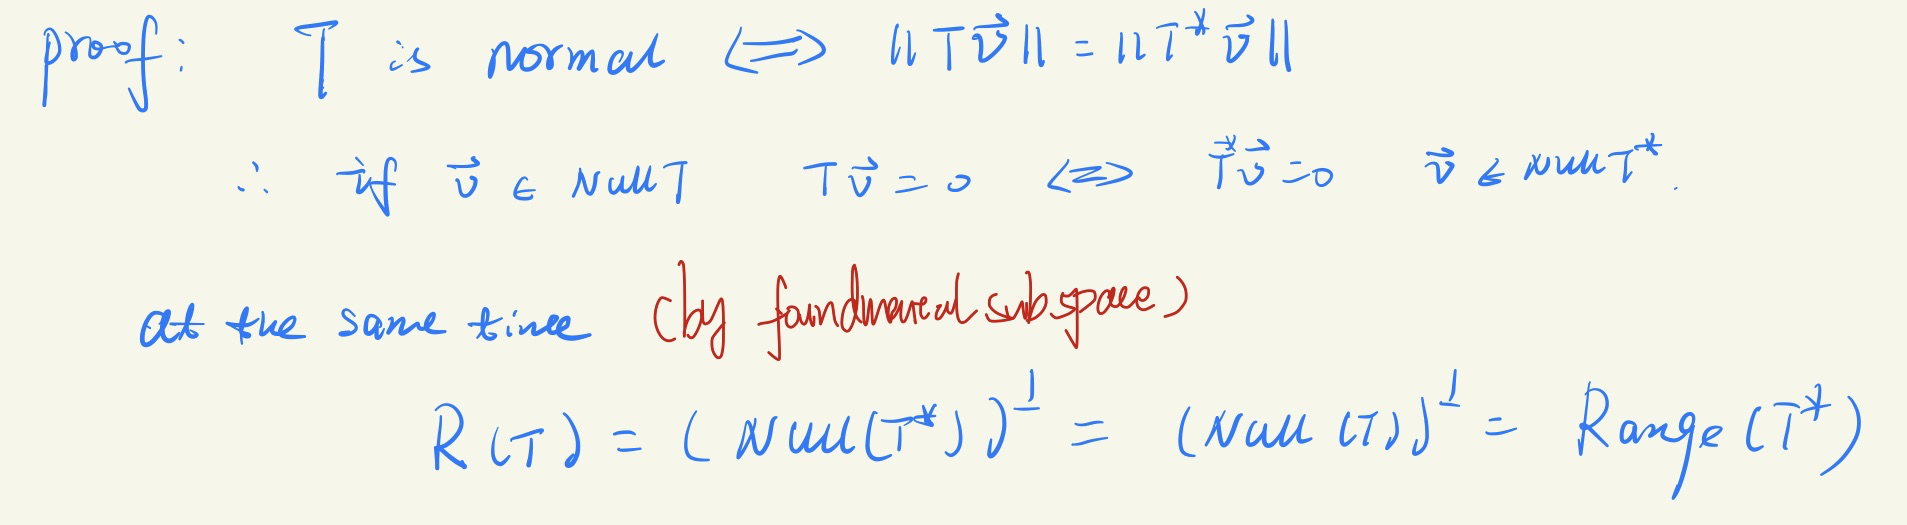 proof: T is normal ⟺ ||Tv⃗|| = ||T*v⃗||
∴ if v⃗ ∈ Null T Tv⃗ = 0 ⟺ T*v⃗ = 0 v⃗ ∈ Null T*.
at the same time (by foundmental subspace)
R(T) = (Null(T*))^⊥ = (Null(T))^⊥ = Range(T*)